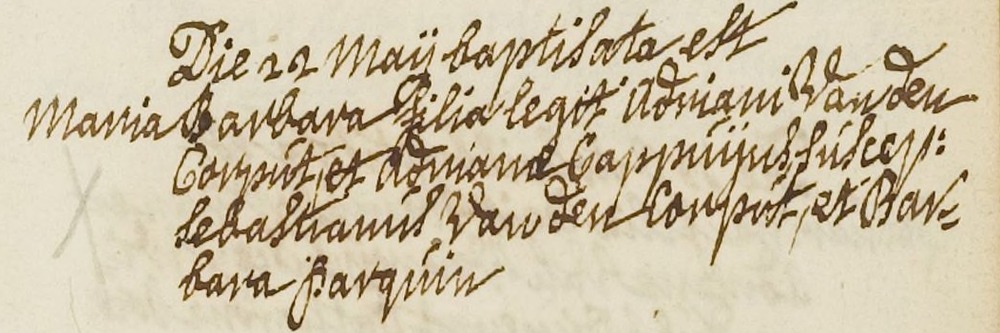 Die 22 Maÿ baptisata est
Maria Barbara Filia legit Adriani Van den
Corput, et Adrianæ Cappuÿns, suscep:
sebastianus Van den Corput, et Bar-
bara parquin